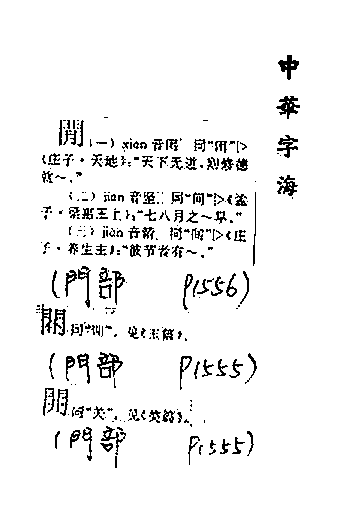 中華字海
閒(一) xián 音闲 同“闲”▷
《庄子·天地》:“天下无道,则修德
就~。”
(二) jiān 音坚 同“间”▷《孟
子·梁惠王上》:“七八月之~旱。”
(三) jiàn 音 同“间”▷《庄
子·养生主》:“彼节者有~。”
(門部 P1556)
同 见《玉篇》。
(門部 P1555)
同“关”,见《 篇》。
(門部 P1555)